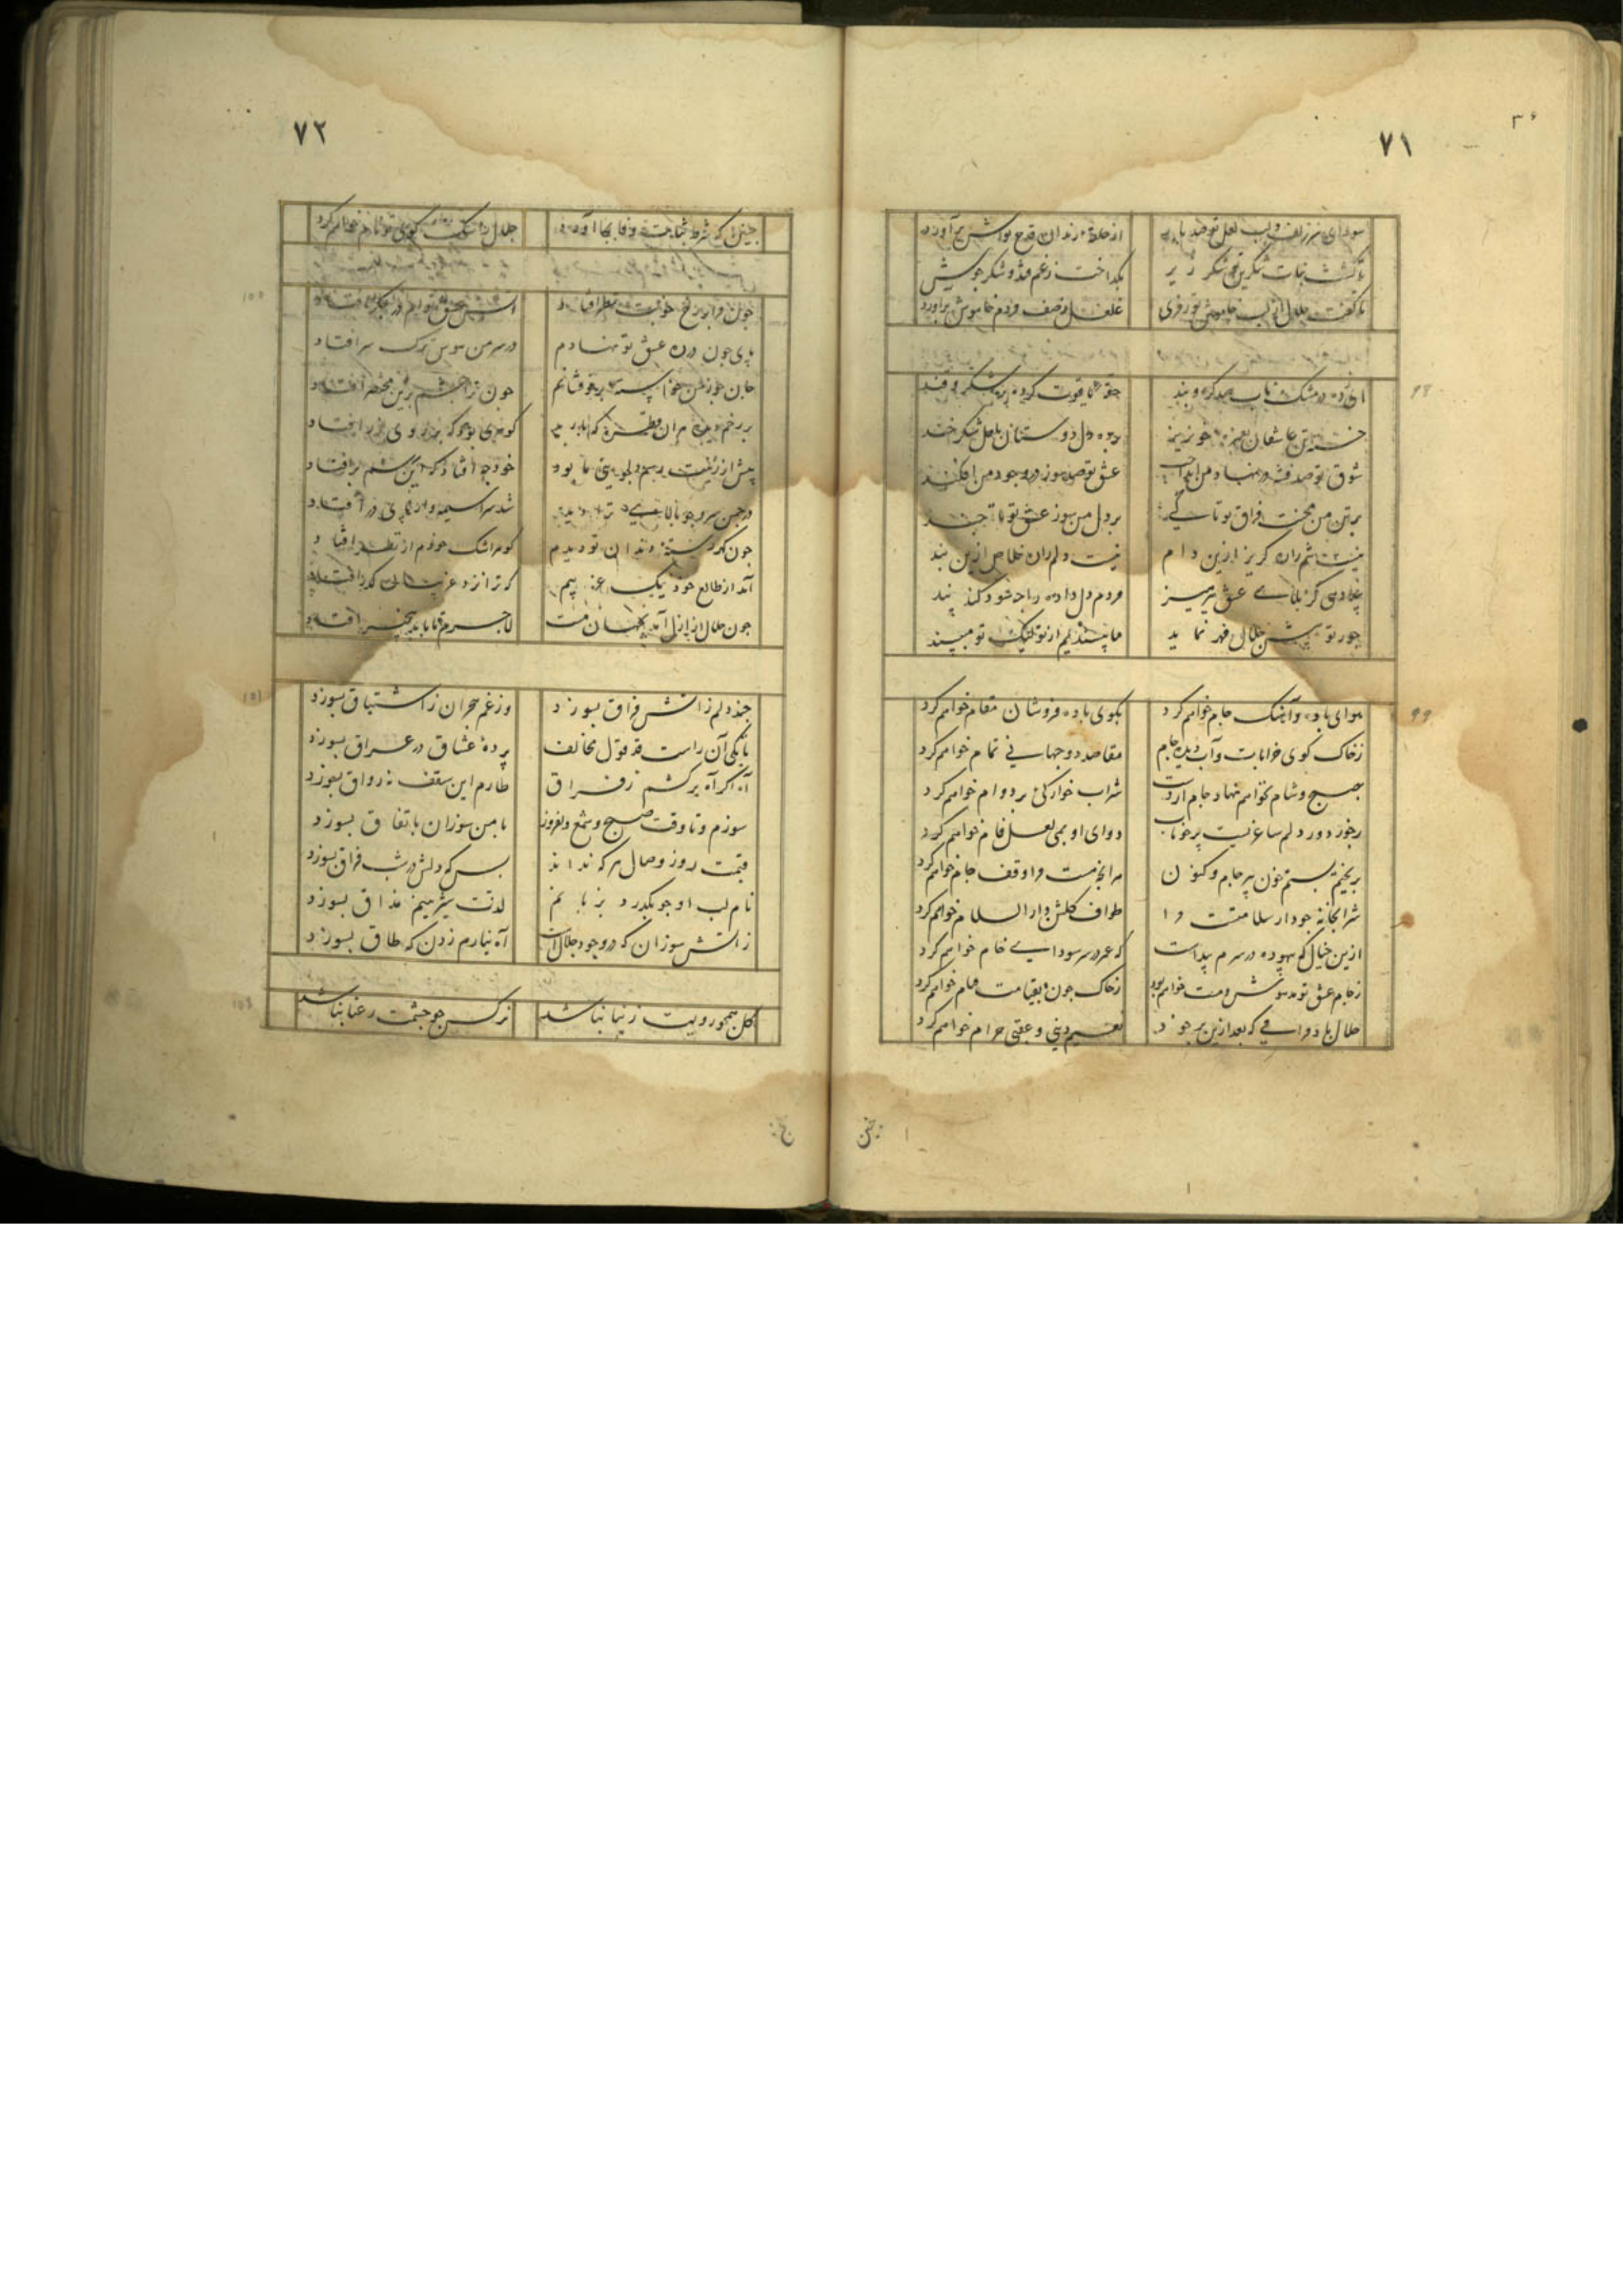 ۳۶
۷۱
سودای سر زلف و لب لعل تو صد بار از حلقهٔ رندان قدح نوش برآورد
بگداخت ز غم قند و شکر
تا گفت جلال از لب خاموش تو رمزی غلغل ز صف مردم خاموش برآورد
۹۸
ای زده در مشک ناب صد گره و بند حقهٔ یاقوت کرده پر شکر و قند
خسته تن عاشقان بغمزهٔ خونریز برده دل دوستان بلعل شکرخند
شوق تو صد فتنه در نهاد من انداخت عشق تو صد سوز در وجود من افکند
بر تن من محنت فراق تو تا کی بر دل من سوز عشق تو تا چند
نیست تنم را گریز ازین دام نیست دلم را خلاص ازین بند
چند دهی کز بلای عشق بپرهیز مردم دل داده را چه سود کند پند
جور تو پیش جلال قهر نماید ما پسندیم از تو لیک تو مپسند
۹۹
هوای باده و آهنگ جام خواهم کرد بکوی باده فروشان مقام خواهم کرد
ز خاک کوی خرابات و آب دیدهٔ جام مقاصد دو جهانی تمام خواهم کرد
بصبح و شام نخواهم نهاد جام از دست شراب خوارکی بر دوام خواهم کرد
ز جور دور دلم ساغریست پر خوناب دوای او بمی لعل فام خواهم کرد
بریختم بستم خون پیر جام و کنون هر آنچه هست مرا وقف جام خواهم کرد
شرابخانه چو دار سلامتست مرا طواف گلشن دار السلام خواهم کرد
ازین خیال که بیهوده در سرم پیداست که عمر در سر سودای خام خواهم کرد
ز جام عشق تو مدهوش و مست خواهم بود ز خاک چون بقیامت قیام خواهم کرد
جلال باده صافی که بعد ازین بر خود نعیم دنیی و عقبی حرام خواهم کرد
چنین
۷۲
چنین که شرط محبت وفا بجا آورد جلال را سگ کوی تو نام خواهم کرد
۱۰۰
چون مرا بر رخ خوبت نظر افتاد آتش عشق توام در جگر افتاد
پای چون در ره عشق تو نهادم در سر من هوس ترک سر افتاد
جان خود من خواستم بر تو فشانم چون ترا چشم برین مختصر افتاد
بر رخم دیده مران قطره که بارید گوهری بود که بر روی زر افتاد
پیش ازینت رسم دلجویی ما بود خود چه افتاد که این رسم برافتاد
در چمن سرو چو بالای ترا دید شد سراسیمه و از پای درافتاد
چون گهر رستهٔ دندان تو دیدم گوهر اشک خودم از نظر افتاد
آمد از طالع خود نیک عزیزم که ترا زود غریبان گذر افتاد
چون جلال از ازل آمد بجهان مست لاجرم تا بابد بیخبر افتاد
۱۰۱
چند دلم ز آتش فراق بسوزد وز غم هجران ز اشتیاق بسوزد
بانگی آن راست قد بقول مخالف پردهٔ عشاق در عراق بسوزد
آه اگر آه برکشم ز فراق طارم این سقف نه رواق بسوزد
سوزم و تا وقت صبح و شمع دلفروز با من سوزان باتفاق بسوزد
قیمت روز وصال هر که نداند بس که دلش در شب فراق بسوزد
نام لب او چو بگذرد بزبانم لذت شیرینیم مذاق بسوزد
ز آتش سوزان که در وجود جلالست آه نیارم زدن که طاق بسوزد
۱۰۲
گل همچو رویت زیبا نباشد نرگس چو چشمت رعنا نباشد